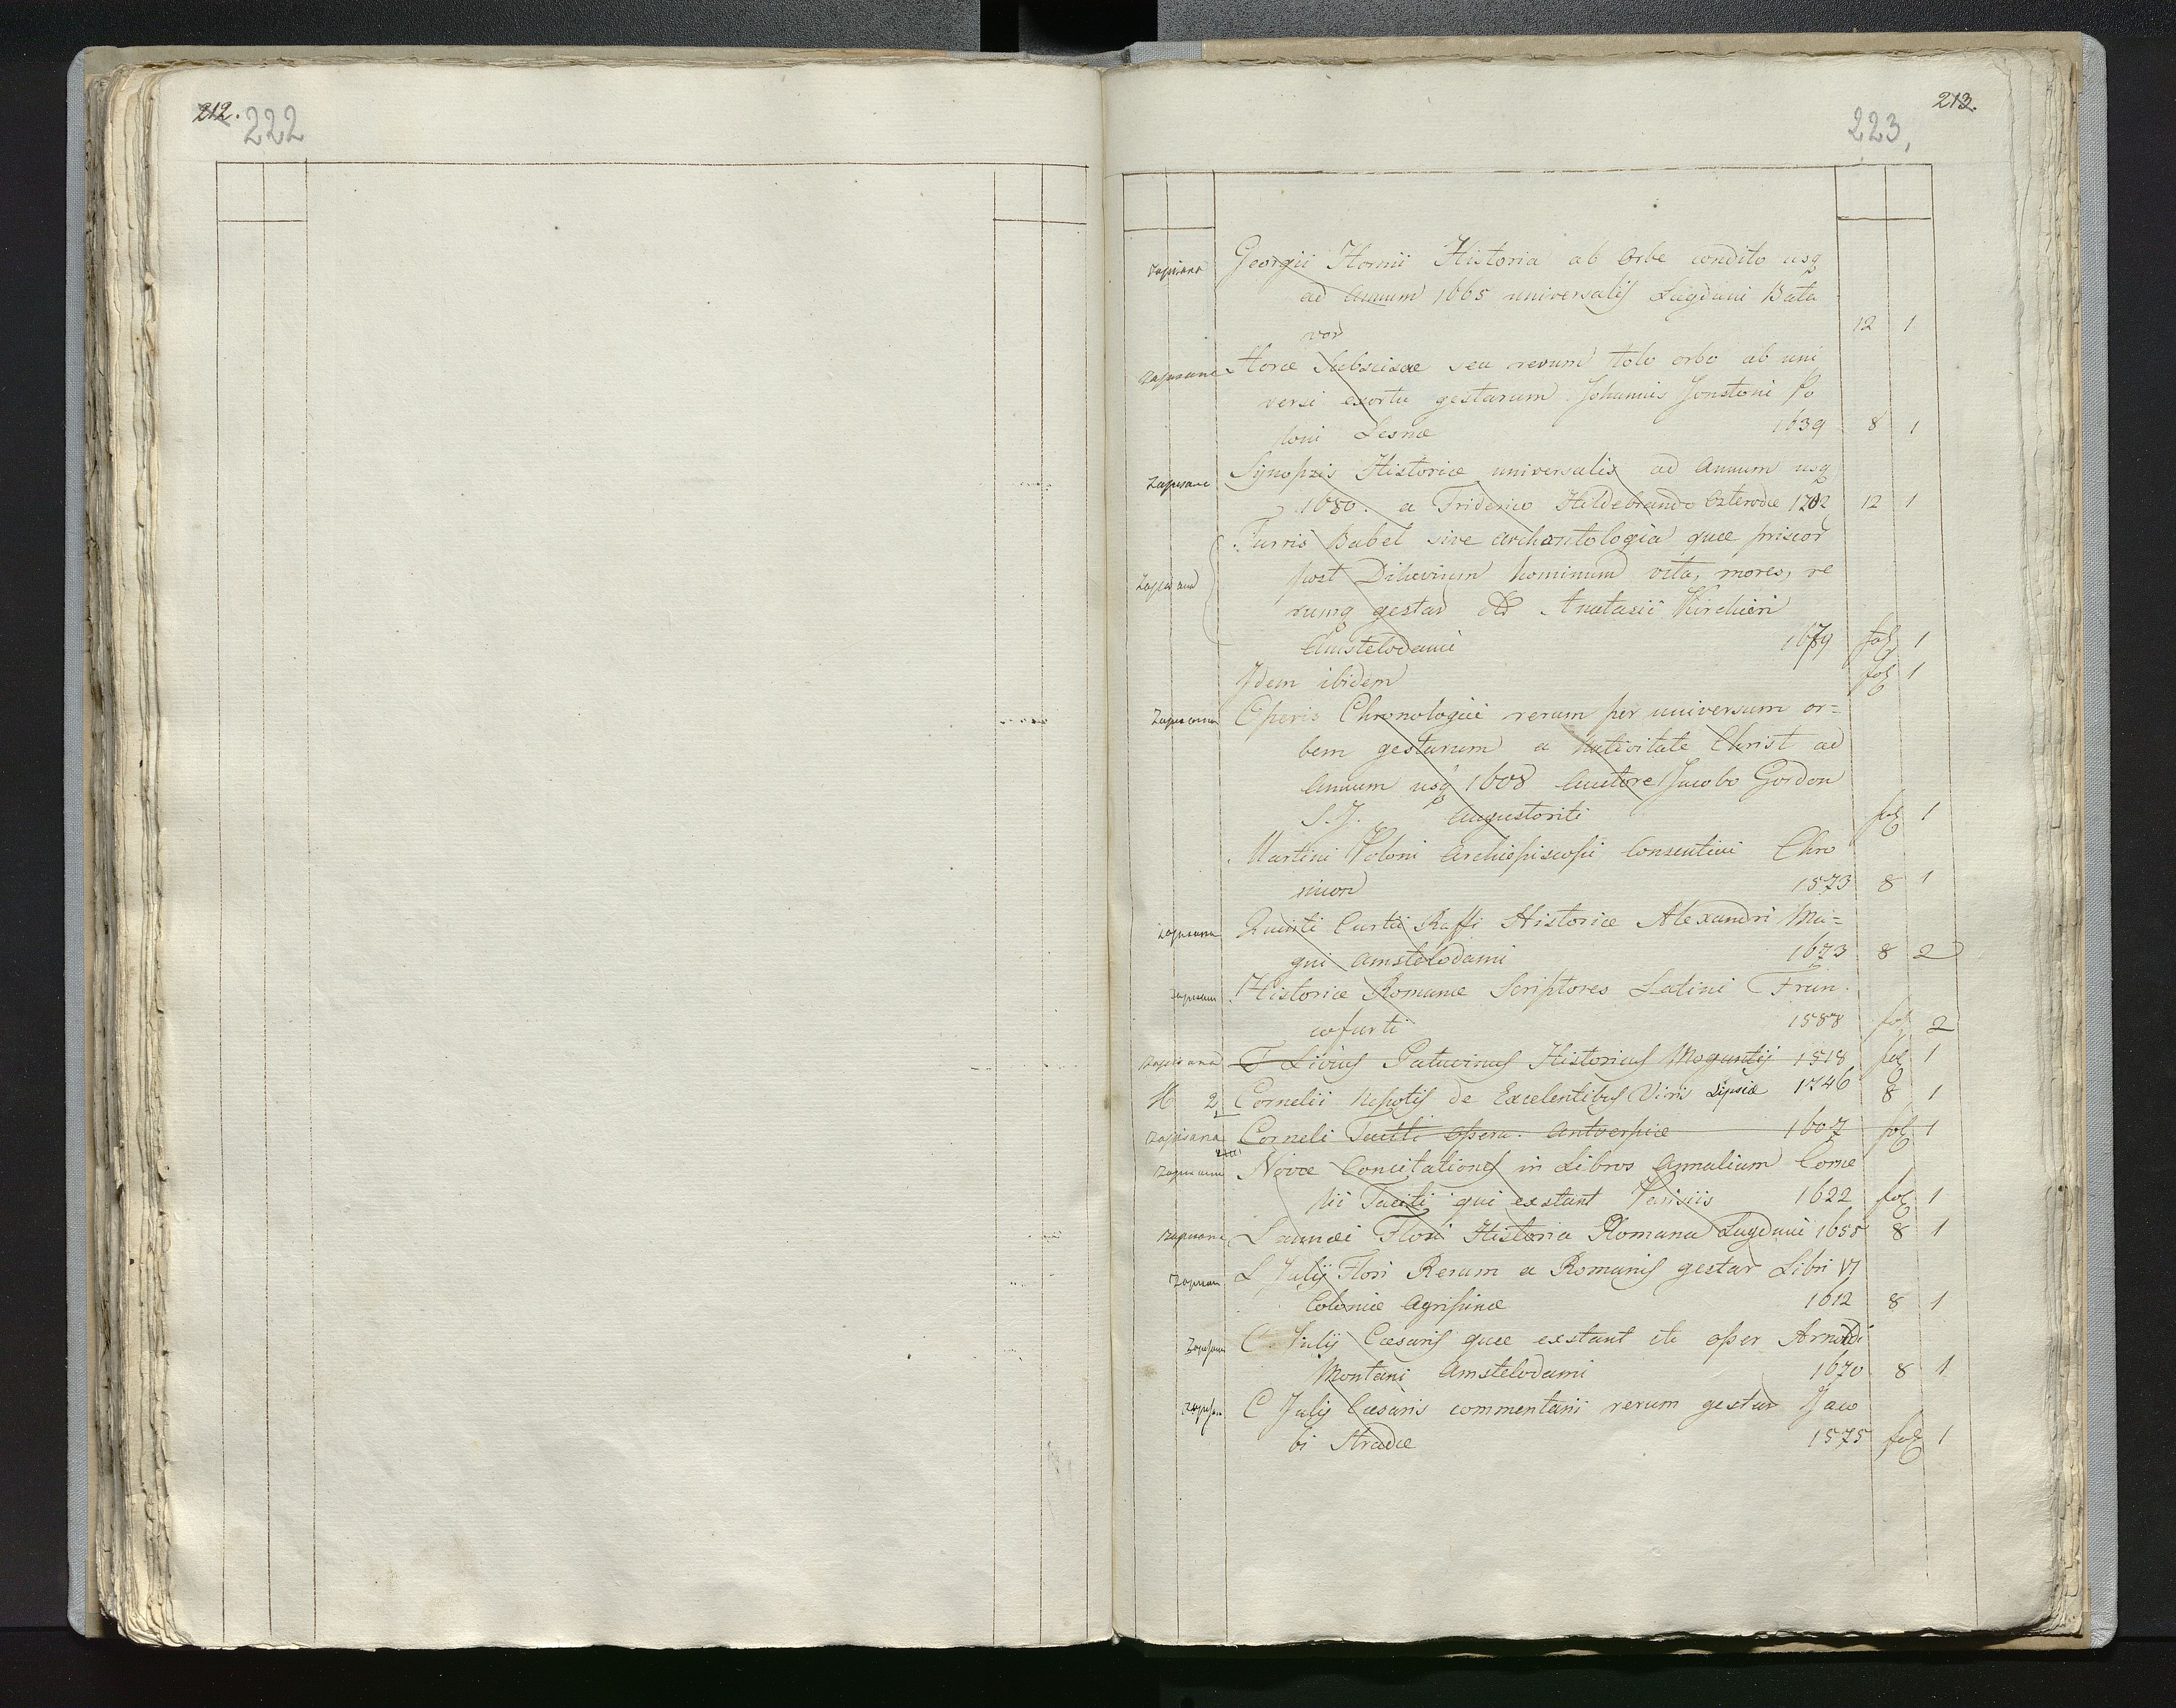 212. 222
213.
223,
Zapisana Georgii Hornii Historia ab Orbe condito usq
ad Annum 1665 universalis Lugduni Bata
vor 12 1
Zapisana Horæ Subscisæ seu rerum toto orbe ab uni
versi exortu gestarum Johannis Jonstoni Po
loni Lesnæ 1639 8 1
Zapisana Synopsis Historiæ universalis ad Annum usq
1680. a Friderico Hildebrando Osterodæ 1702 12 1
Turris Babel sive Archontologia quæ priscor
Zapisana post Diluvium hominum vita, mores, re
rumq gestar Anatasii Kircheri
Amstelodami 1679 fol 1
Idem ibidem fol 1
Zapisana Operis Chronologici rerum per universum or=
bem gestarum a Nativitate Christ ad
Annum usq 1608 Auctore Jacobo Gordon
S. J. Augustoriti fol 1
Martini Poloni Archiepiscopi Consentini Chro
nicon 1573 8 1
Zapisana Quinti Curtii Ruffi Historiæ Alexandri Ma=
gni Amstelodami 1673 8 2
Zapisana Historiæ Romanæ Scriptores Latini Fran
cofurti 1588 fol 2
Zapisana T Livius Patavinus Historicus Moguntij 1518 fol 1
H 2 Cornelii Nepotis de Excelentibus Viris Lipsiæ 1746 8 1
Zapisana Corneli Taciti Opera. Antverpiæ 1607 fol 1
Zapisana Novæ Concitationes in Libros Annalium Corne
lii Taciti qui exstant Parisiis 1622 fol 1
Zapisana L annæi Flori Historia Romana Lugduni 1655 8 1
Zapisana L Julij Flori Rerum a Romanis gestar Libri VI
Coloniæ Agripinæ 1612 8 1
Zapisana C. Julij Cæsaris quæ exstant ex oper Arnoldi
Montani Amstelodami 1670 8 1
Zapisana C Julij Cæsaris commentarii rerum gestar Jaco
bi Stradæ 1575 fol 1